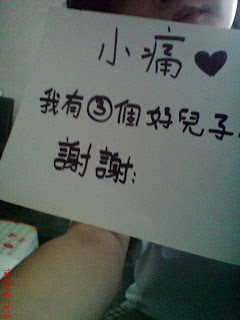 小痛♥
我有③個好兒子.
謝謝: